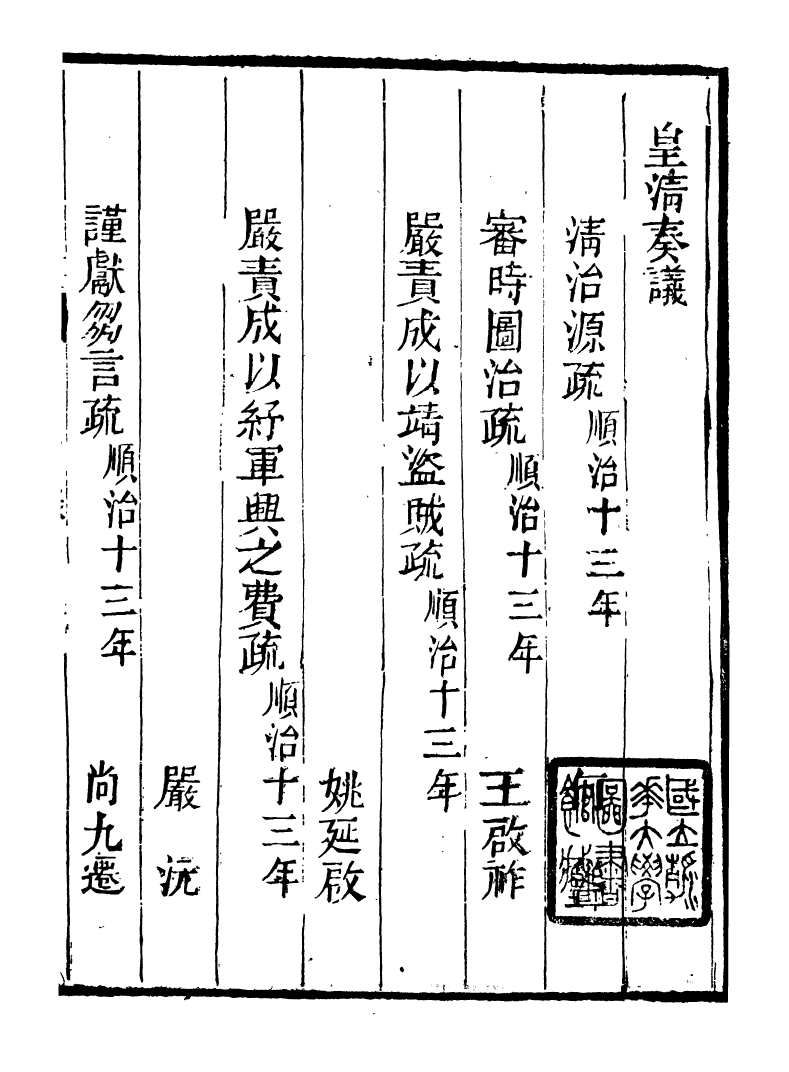 皇清奏議
清治源疏 順治十三年
審時圖治疏 順治十三年 王啟祚
嚴責成以靖盜賊疏 順治十三年
姚延啟
嚴責成以紓軍興之費疏 順治十三年
嚴沆
謹獻芻言疏 順治十三年 尚九遷
國立清
華大學
圖書
館藏